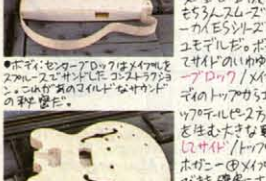 ●ボディ:センターブロックはメイプルを
スプルースでサンドしたコンストラクショ
ン。これがあのマイルドなサウンド
の秘密だ。
もちろんスムーズ
ーカイESシリーズ
ユモデルだ。ボ
てサイドのいわゆ
ーブロック/メイ
ディのトップからボ
ップのテールピース方
を生む大きな
してサイド/トップ
ホガニー